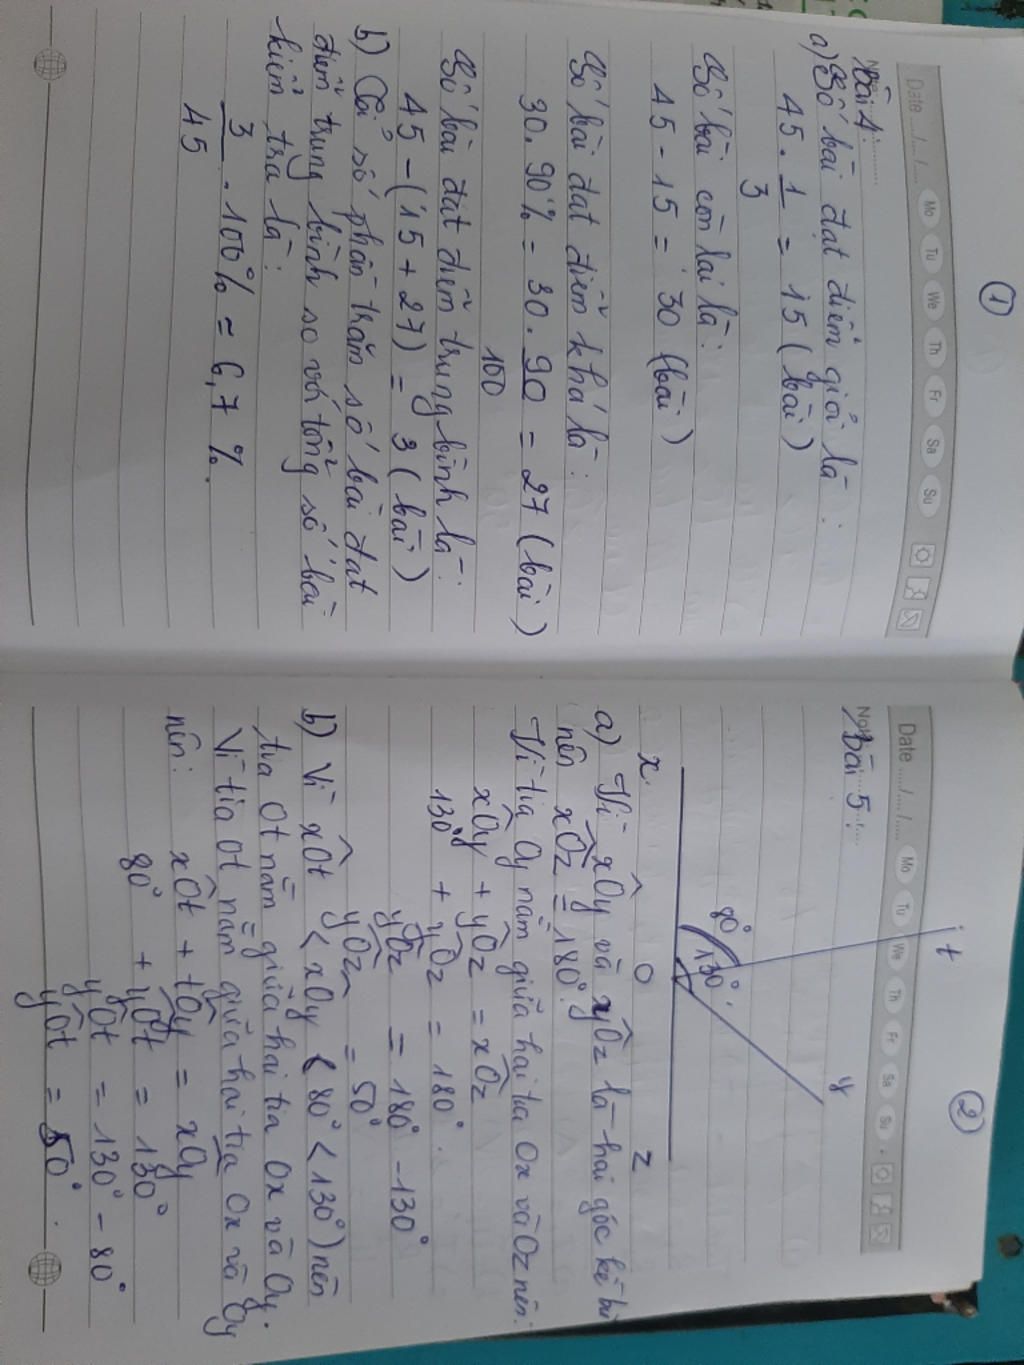 1
Date ..../..../....
Mo Tu We Th Fr Sa Su
Bài 4:
a) Số bài đạt điểm giỏi là:
45 . 1/3 = 15 (bài)
Số bài còn lại là:
45 - 15 = 30 (bài)
Số bài đạt điểm khá là:
30. 90% = 30. 90/100 = 27 (bài)
Số bài đạt điểm trung bình là:
45 - (15 + 27) = 3 (bài)
b) Tỉ số phần trăm số bài đạt
điểm trung bình so với tổng số bài
kiểm tra là:
3/45 . 100% ≈ 6,7 %.
2
Date ..../..../....
Mo Tu We Th Fr Sa Su
Bài 5:
t
y
80°
130°
x O z
a) Vì xÔy và yÔz là hai góc kề bù
nên xÔz = 180°.
Vì tia Oy nằm giữa hai tia Ox và Oz nên:
xÔy + yÔz = xÔz
130° + yÔz = 180°.
yÔz = 180° - 130°
yÔz = 50°
b) Vì xÔt < xÔy (80° < 130°) nên
tia Ot nằm giữa hai tia Ox và Oy.
Vì tia Ot nằm giữa hai tia Ox và Oy
nên: xÔt + tÔy = xÔy
80° + yÔt = 130°
yÔt = 130° - 80°
yÔt = 50°.